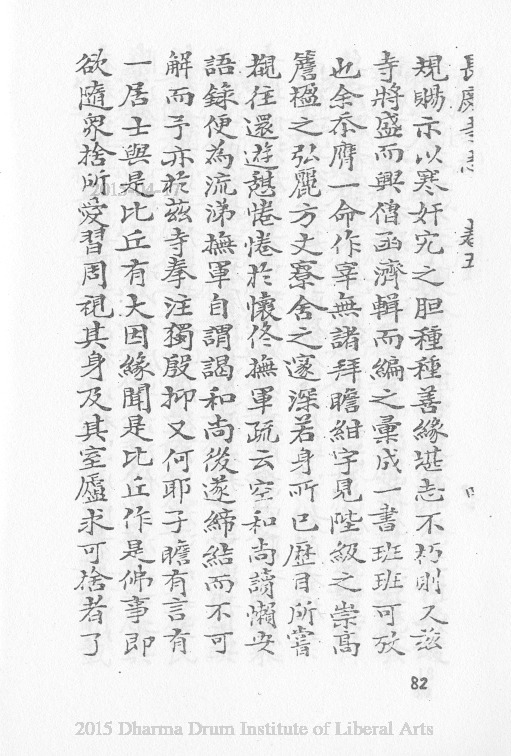 長慶寺志　卷五
規賜示以寒奸宄之胆種種善緣堪志不朽則又茲
寺將盛而興僧函濟輯而編之彙成一書班班可攷
也余忝膺一命作宰無諸拜瞻紺宇見陛級之崇高
簷楹之弘麗方丈寮舍之邃深若身所已歷目所嘗
擬往還遊憇惓惓於懷佟撫軍疏云空和尚讀懶安
語錄便為流涕撫軍自謂謁和尚後遂締結而不可
解而予亦於茲寺拳注獨殷抑又何耶子瞻有言有
一居士與是比丘有大因緣聞是比丘作是佛事即
欲隨眾捨所愛習周視其身及其室廬求可捨者了
82
2015 Dharma Drum Institute of Liberal Arts